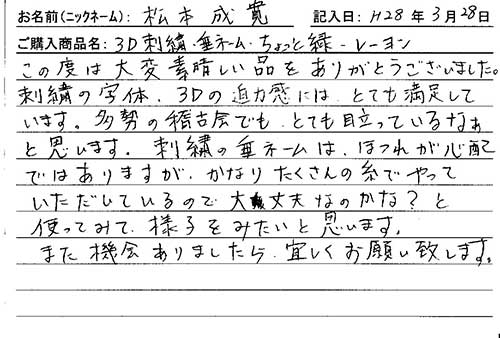 お名前(ニックネーム): 松本成寛 記入日: H28年3月28日
ご購入商品名: 3D刺繍・垂ネーム・ちょっと緑-レーヨン
この度は大変素晴しい品をありがとうございました。
刺繍の字体、3Dの迫力感には、とても満足して
います。多勢の稽古会でも、とても目立っているなぁ
と思います。刺繍の垂ネームは、ほつれが心配
ではありますが、かなりたくさんの糸でやって
いただしているので大丈夫なのかな?と
使ってみて、様子をみたいと思います。
また機会ありましたら、宜しくお願い致します。